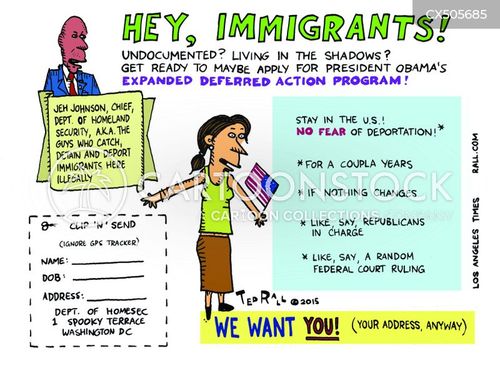 CX505685
HEY, IMMIGRANTS!
UNDOCUMENTED? LIVING IN THE SHADOWS?
GET READY TO MAYBE APPLY FOR PRESIDENT OBAMA'S
EXPANDED DEFERRED ACTION PROGRAM!
JEH JOHNSON, CHIEF,
DEPT. OF HOMELAND
SECURITY, A.K.A. THE
GUYS WHO CATCH,
DETAIN AND DEPORT
IMMIGRANTS HERE
ILLEGALLY
STAY IN THE U.S.!
NO FEAR OF DEPORTATION!*
* FOR A COUPLA YEARS
* IF NOTHING CHANGES
* LIKE, SAY, REPUBLICANS
IN CHARGE
* LIKE, SAY, A RANDOM
FEDERAL COURT RULING
CARTOONSTOCK
CARTOON COLLECTIONS
CLIP 'N' SEND
(IGNORE GPS TRACKER)
NAME:
DOB:
ADDRESS:
DEPT. OF HOMESEC
1 SPOOKY TERRACE
WASHINGTON DC
TED RALL ©2015
WE WANT YOU! (YOUR ADDRESS, ANYWAY)
LOS ANGELES TIMES RALL.COM